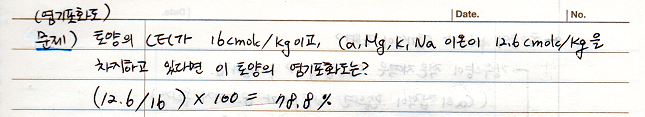 (염기포화도)
Date. No.
문제) 토양의 CEC가 16cmolc/kg이고, Ca, Mg, K, Na 이온이 12.6cmolc/kg을
차지하고 있다면 이 토양의 염기포화도는?
(12.6/16) × 100 = 78.8%